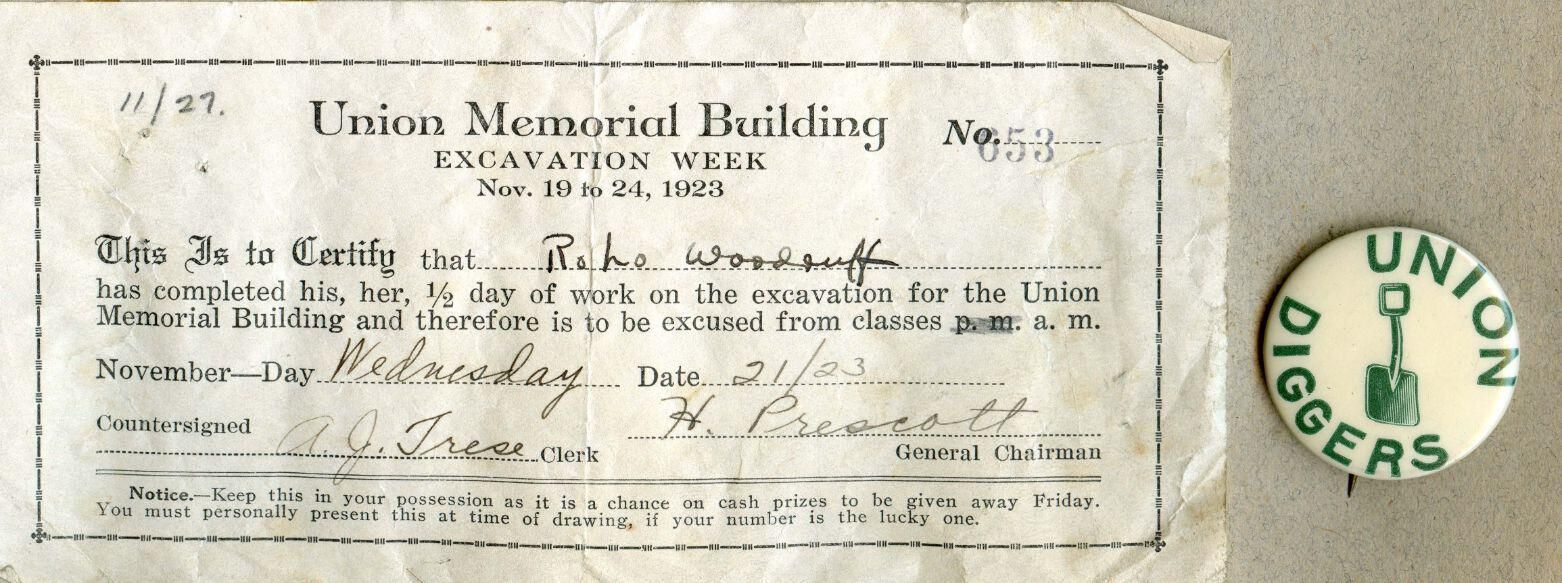 11/27.
Union Memorial Building No. 653
EXCAVATION WEEK
Nov. 19 to 24, 1923
This Is to Certify that Woodruff
has completed his, her, ½ day of work on the excavation for the Union
Memorial Building and therefore is to be excused from classes p. m. a. m.
November—Day Wednesday Date 21/23
Countersigned H. Prescott
A. J. Trese Clerk General Chairman
Notice.—Keep this in your possession as it is a chance on cash prizes to be given away Friday.
You must personally present this at time of drawing, if your number is the lucky one.
UNION
DIGGERS